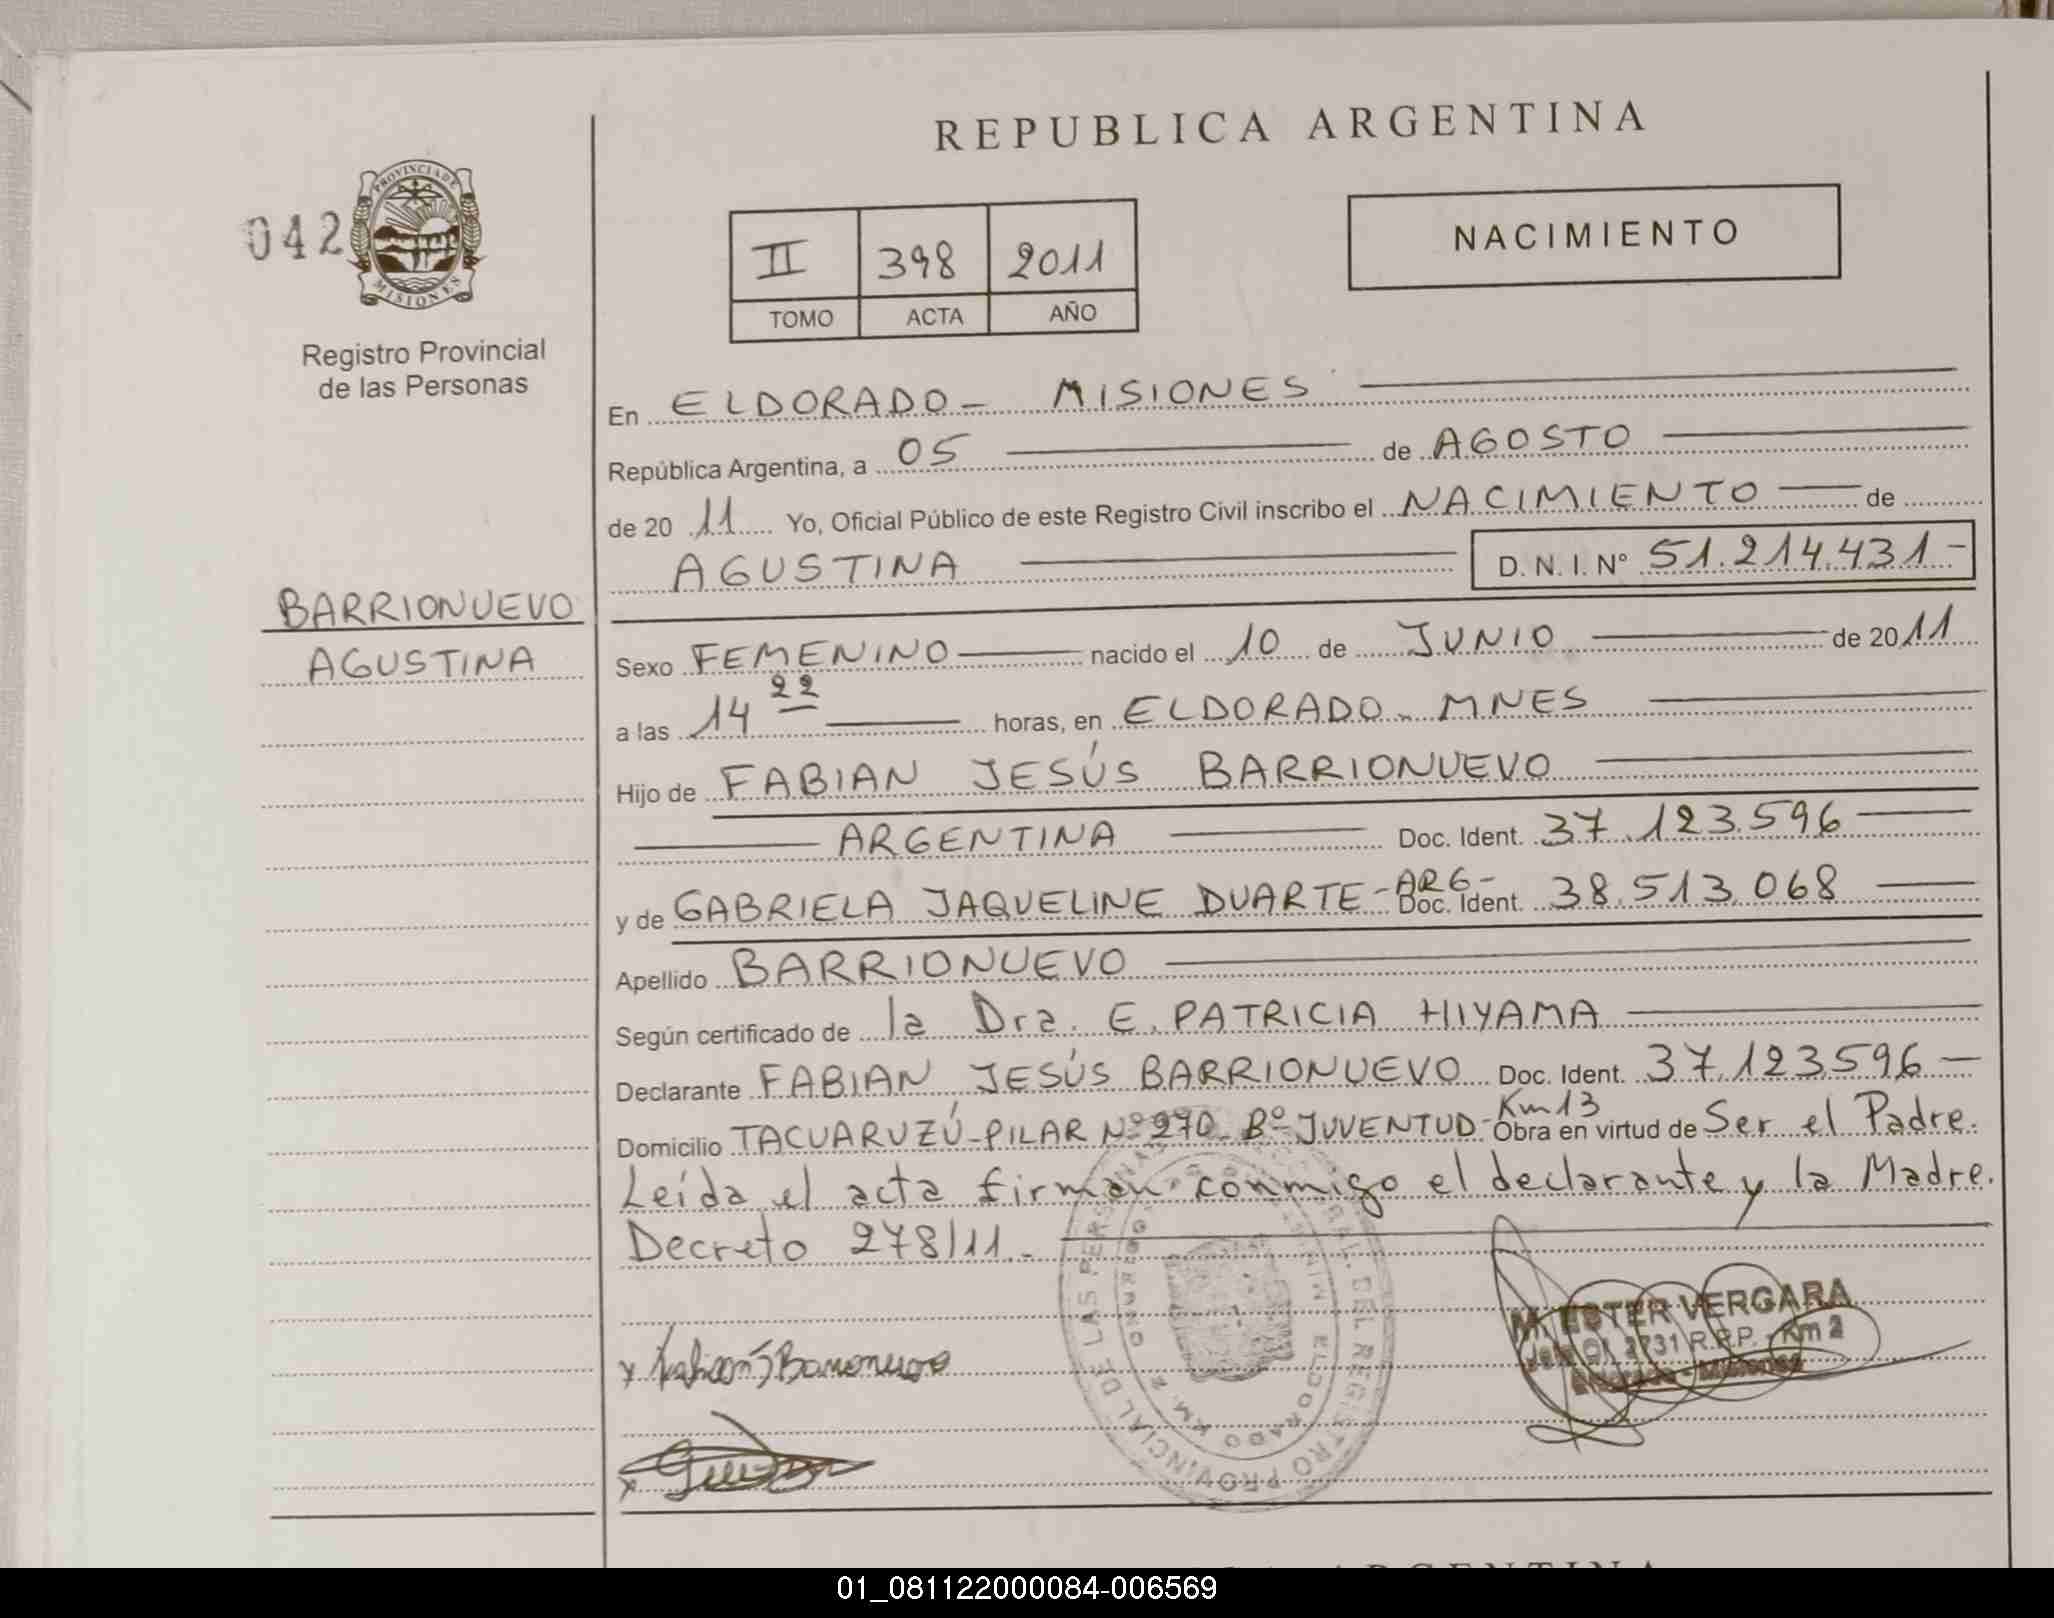 REPUBLICA ARGENTINA
042
PROVINCIA DE
MISIONES
Registro Provincial
de las Personas
II 398 2011
TOMO ACTA AÑO
NACIMIENTO
BARRIONUEVO
AGUSTINA
En ELDORADO - MISIONES
República Argentina, a 05 de AGOSTO
de 20 11 Yo, Oficial Público de este Registro Civil inscribo el NACIMIENTO de
AGUSTINA D. N. I. Nº 51.214.431-
Sexo FEMENINO nacido el 10 de JUNIO de 2011
a las 14 22 horas, en ELDORADO - MNES
Hijo de FABIAN JESÚS BARRIONUEVO
ARGENTINA Doc. Ident. 37.123.596
y de GABRIELA JAQUELINE DUARTE - ARG - Doc. Ident. 38.513.068
Apellido BARRIONUEVO
Según certificado de la Dra. E. PATRICIA HIYAMA
Declarante FABIAN JESÚS BARRIONUEVO Doc. Ident. 37.123.596
Domicilio TACUARUZÚ-PILAR Nº 270 Bº JUVENTUD - Km 13 Obra en virtud de Ser el Padre.
Leída el acta firman conmigo el declarante y la Madre.
Decreto 278/11.-
x Fabian J Barrionuevo
x
REGISTRO PROVINCIAL DE LAS PERSONAS
ELDORADO KM 2
M. ESTER VERGARA
Of. 2731 R.P.P. - Km 2
Eldorado - Misiones
ARGENTINA
01_081122000084-006569